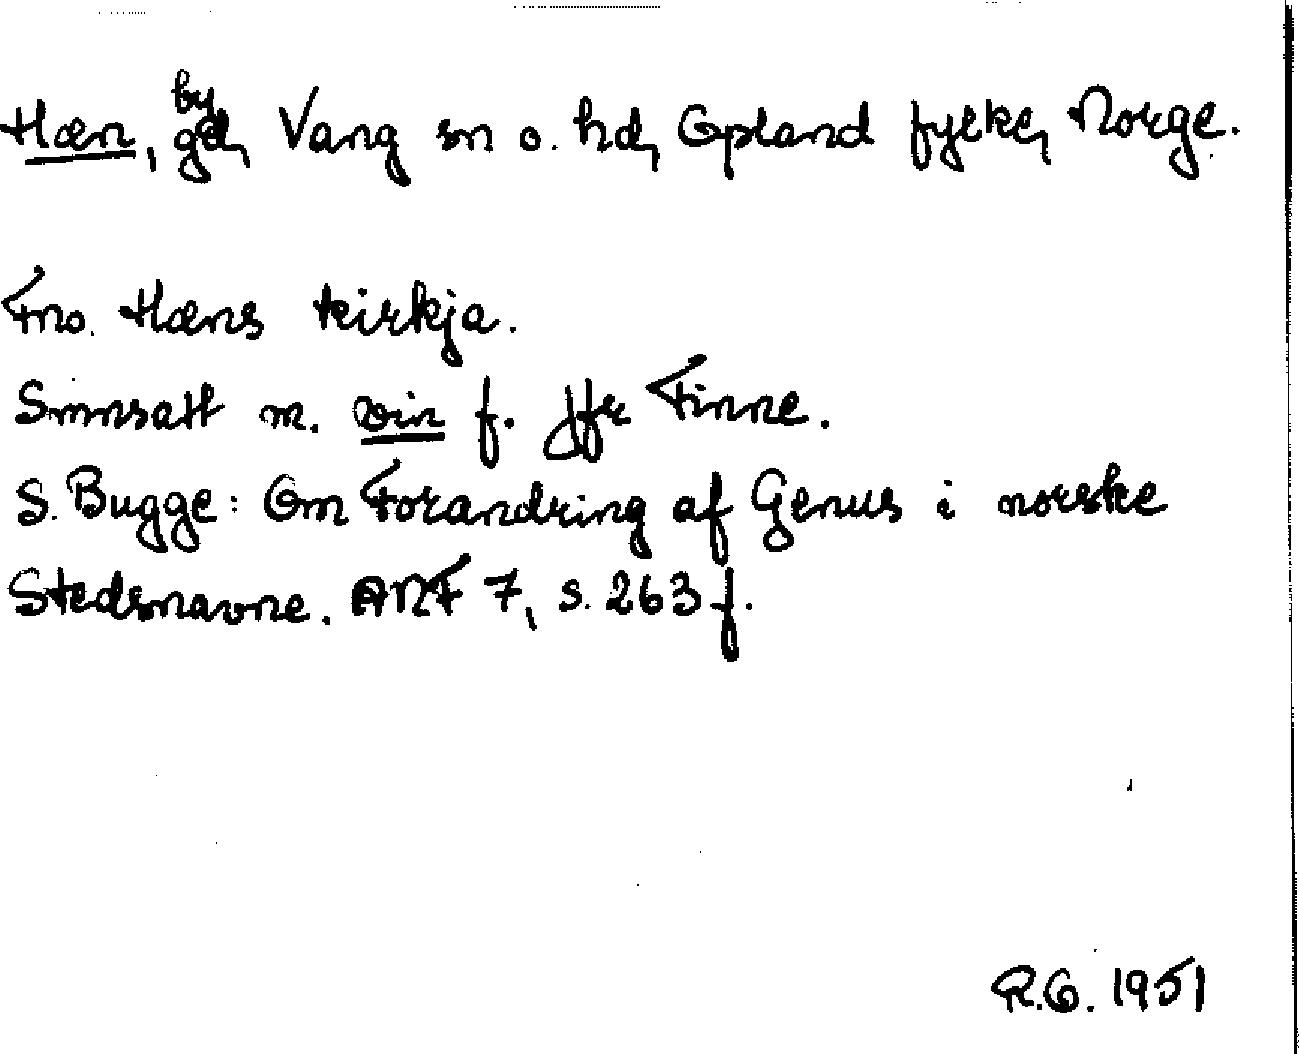 by
Hæn, gd, Vang sn o. hd, Opland fylke, Norge.
Fno. Hæns kirkja.
Smnsatt m. vin f. Jfr Finne.
S. Bugge: Om Forandring af Genus i norske
Stedsnavne. ANF 7, s. 263 f.
R.G. 1951